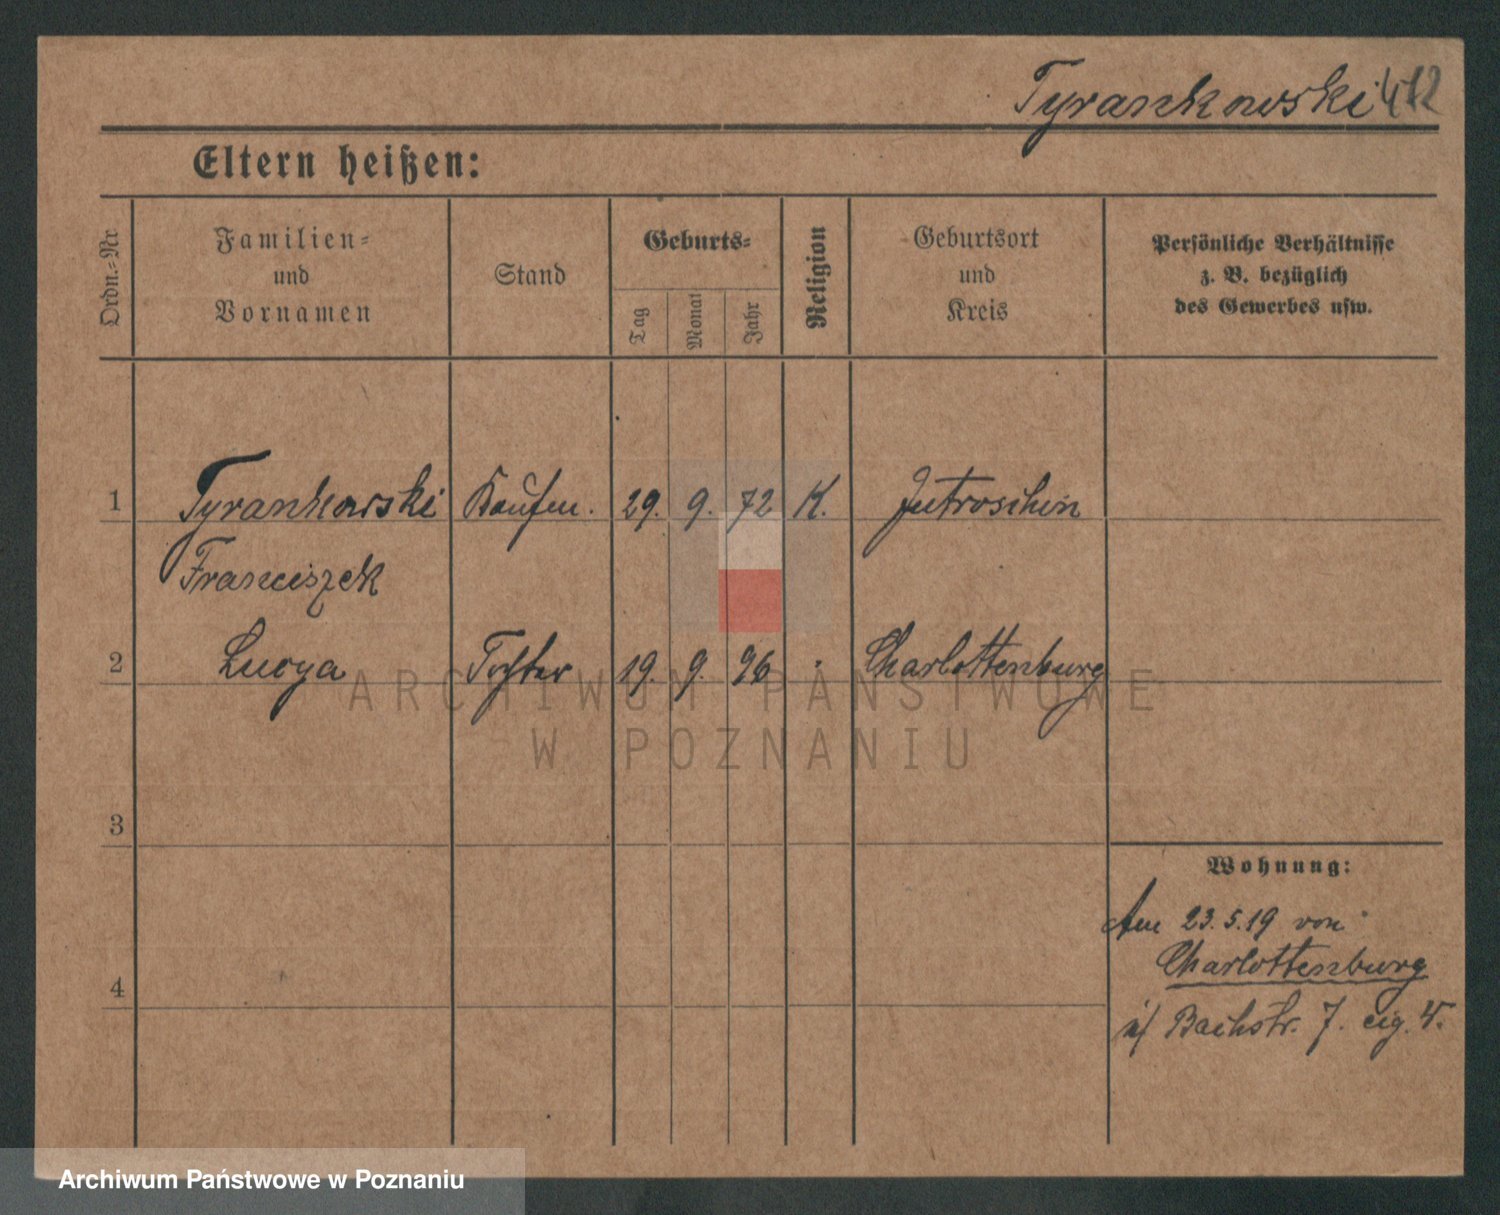 Tyrankowski 412
Eltern heißen:
Ordn.-Nr
Familien-
und
Vornamen
Stand
Geburts-
Tag
Monat
Jahr
Religion
Geburtsort
und
Kreis
Persönliche Verhältnisse
z. B. bezüglich
des Gewerbes usw.
1 Tyrankowski Kaufm. 29. 9. 72 K. Jutroschin
Franciszek
2 Lucya Tochter 19. 9. 96 Charlottenburg
ARCHIWUM PAŃSTWOWE
W POZNANIU
3
Wohnung:
Am 23.5.19 von
Charlottenburg
4
n/ Bachstr. 7. eig. W.
Archiwum Państwowe w Poznaniu